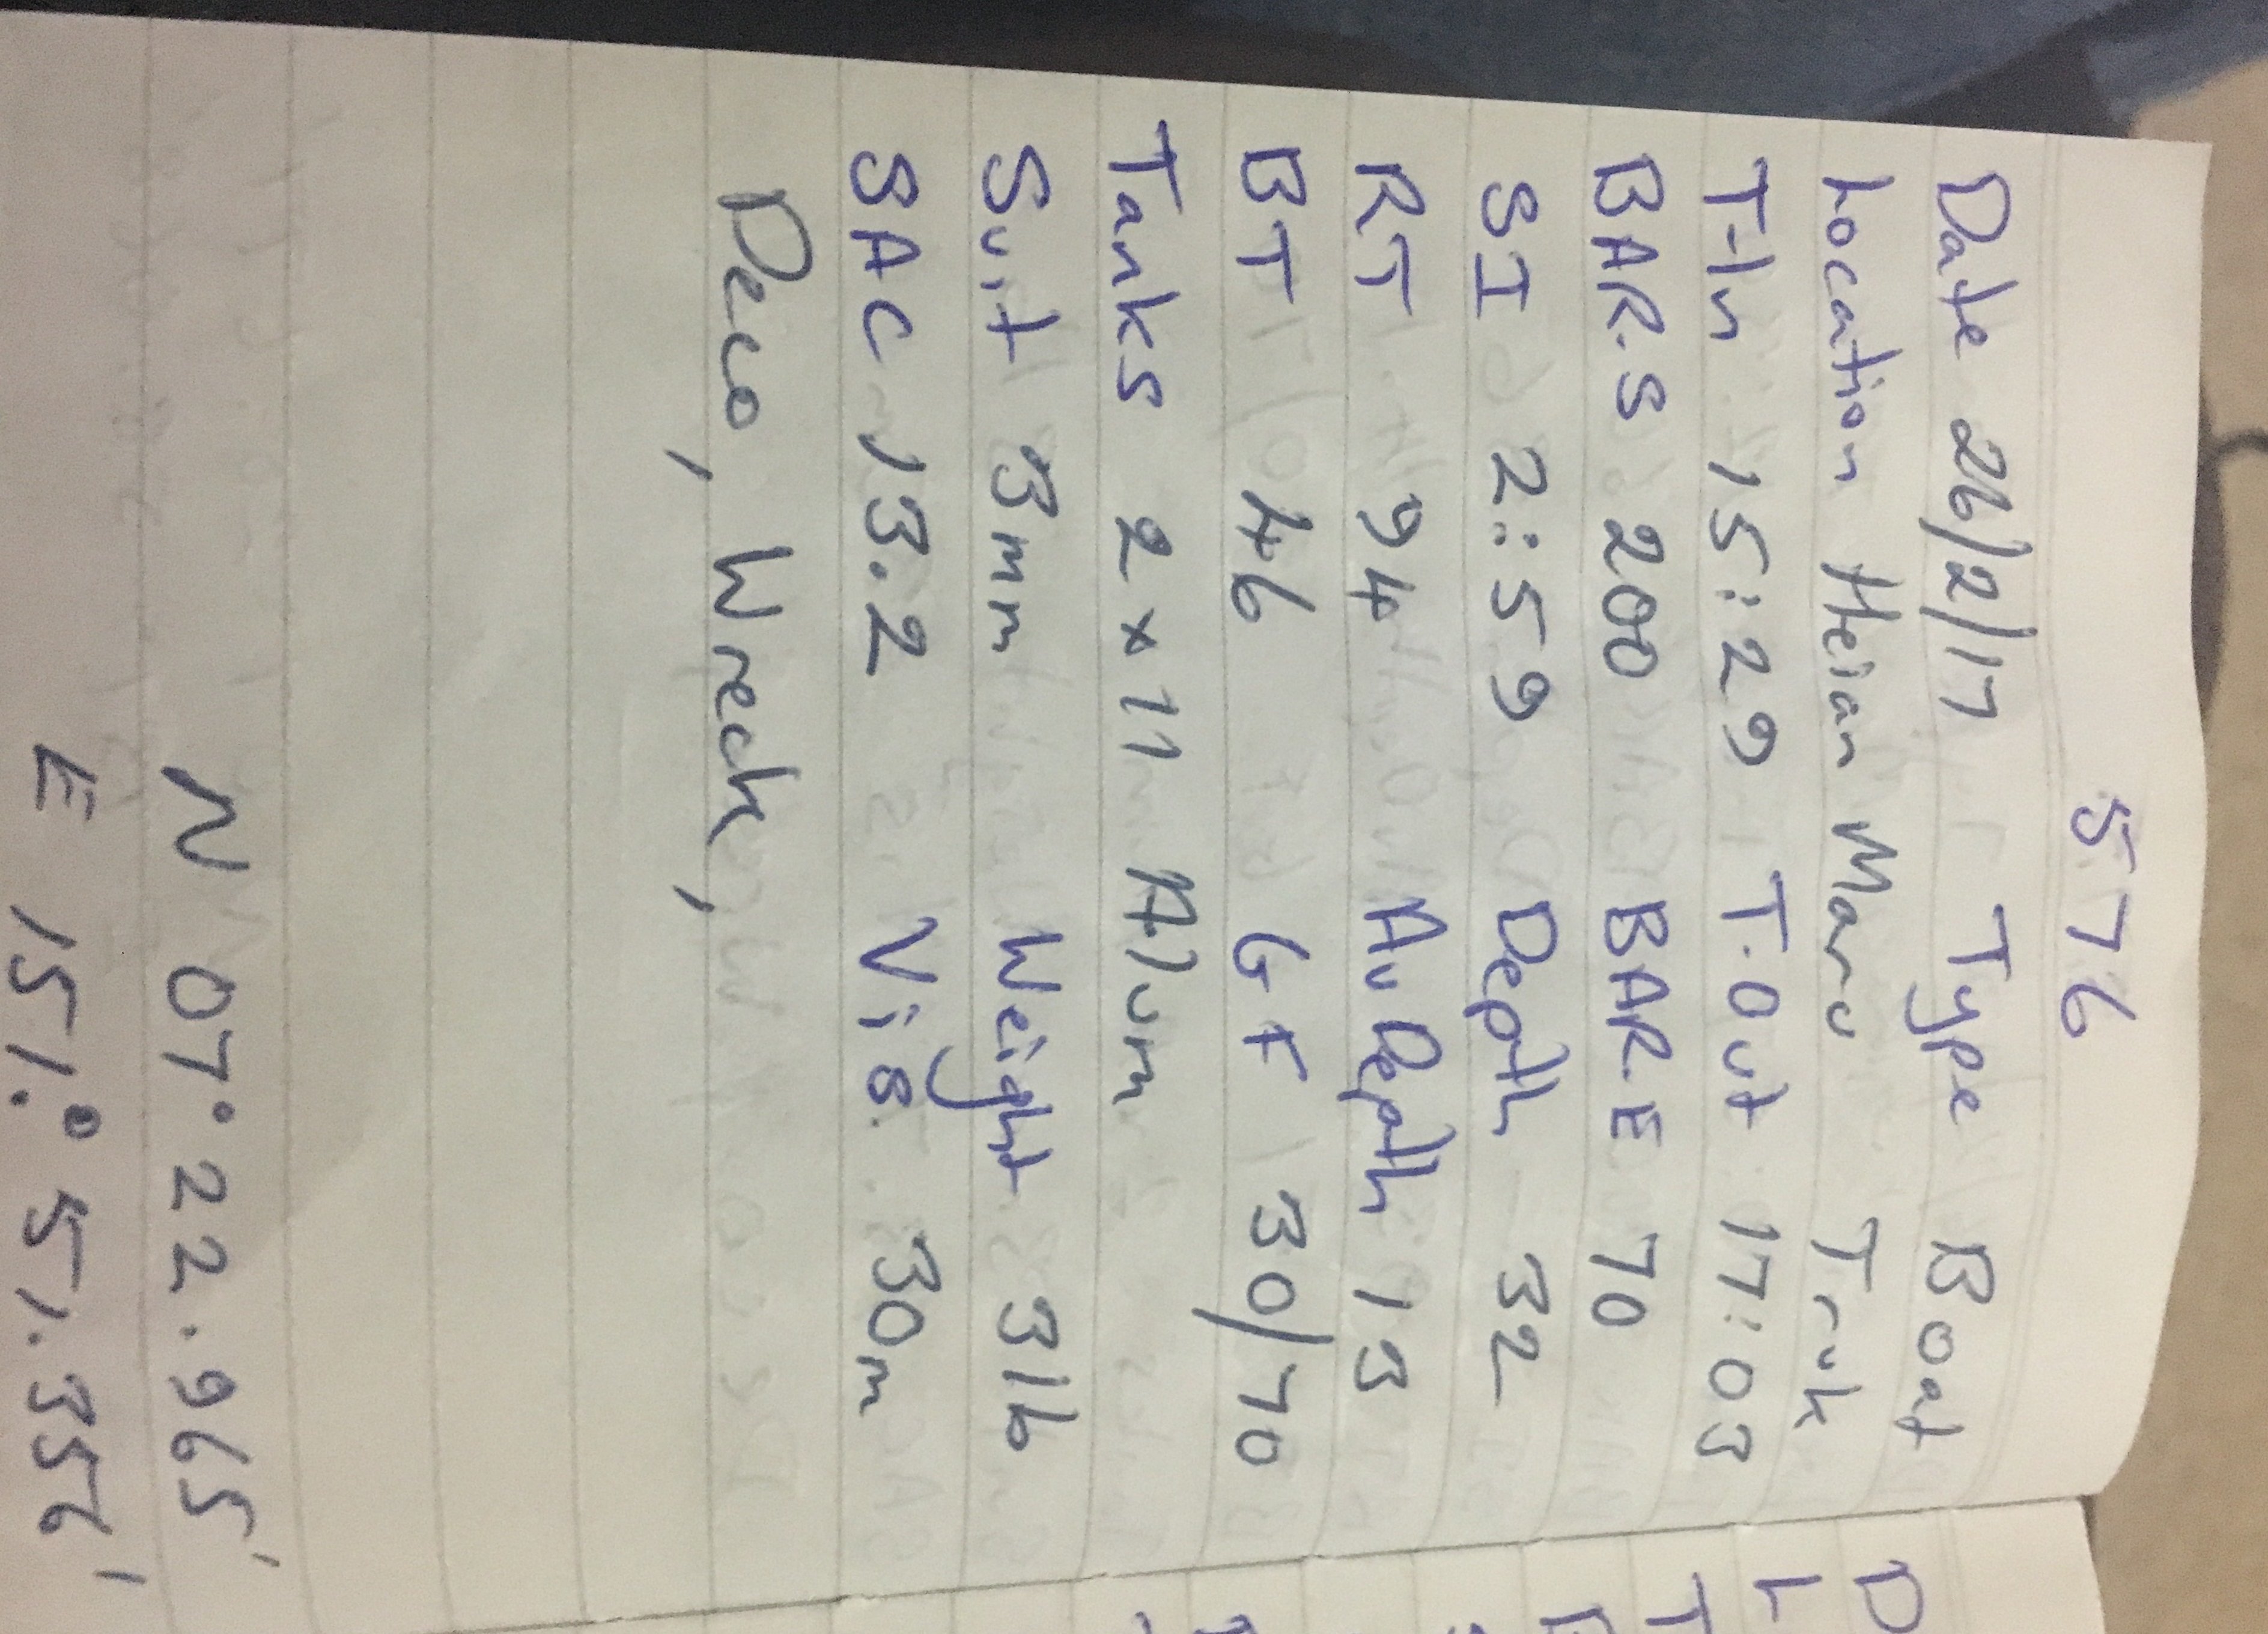 576
Date 26/2/17 Type Boat
Location Heian Maru Truk
T-In 15:29 T.Out 17:03
BAR.S 200 BAR E 70
SI 2:59 Depth 32
RT 94 Av Depth 13
BT 46 GF 30/70
Tanks 2 x 11 Alum
Suit 3mm Weight 3lb
SAC 13.2 Vis. 30m
Deco, Wreck,
N 07° 22.965'
E 151.° 51.356'
D
L
T